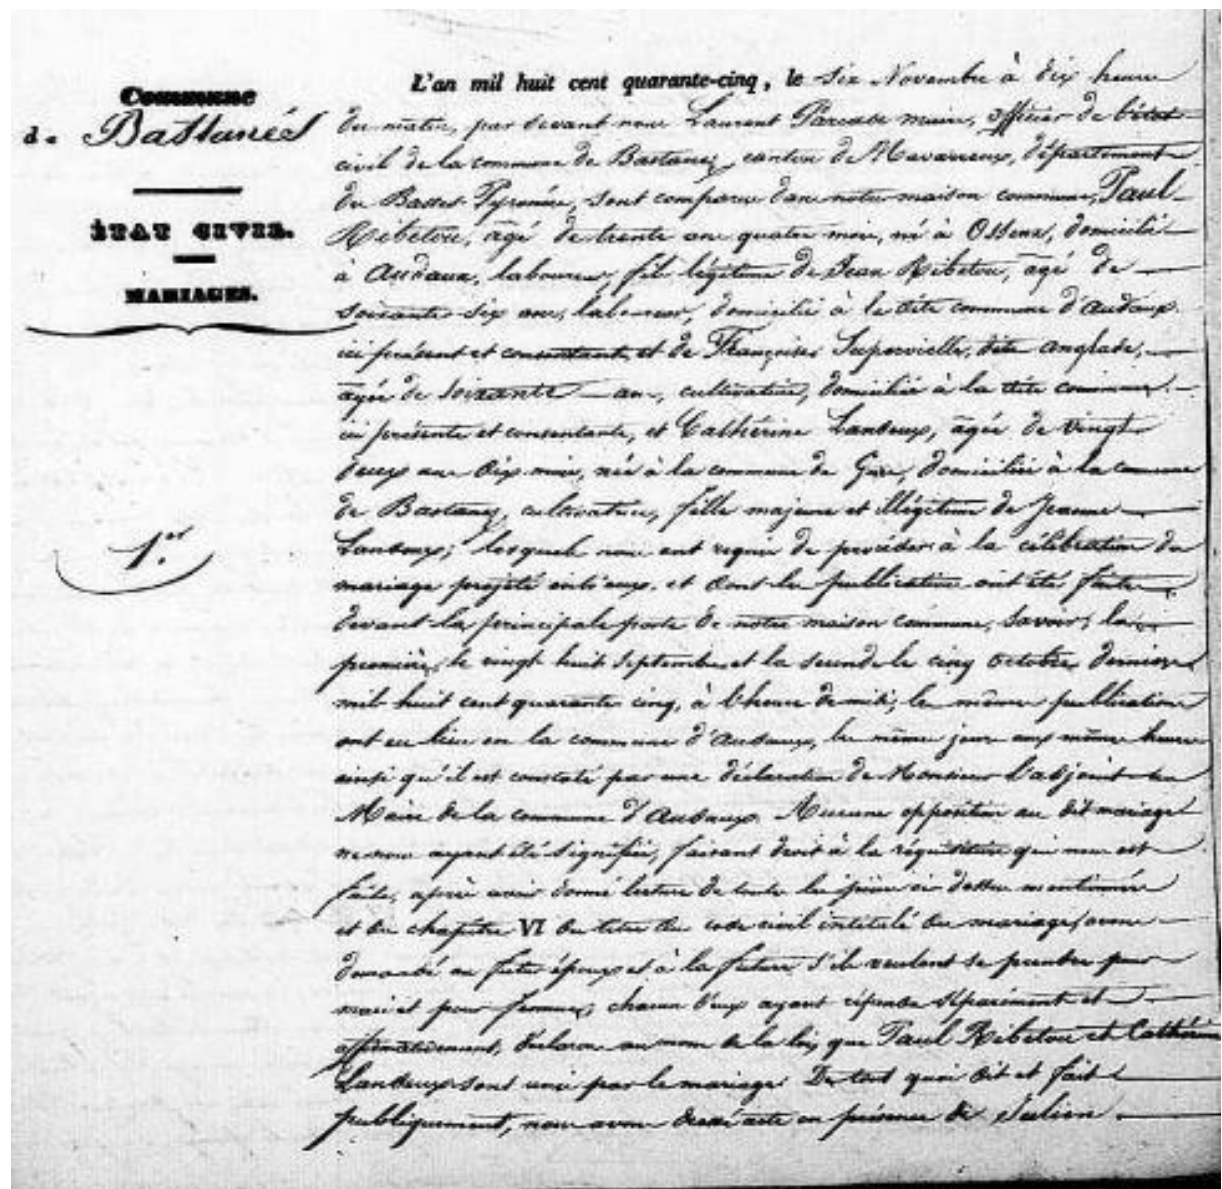 Commune
de Bastanés
ÉTAT CIVIL.
MARIAGES.
1.er
L'an mil huit cent quarante-cinq, le six Novembre à dix heures
du matin, par devant nous Laurent maire, officier de l'état
civil de la commune de Bastanes, canton de Navarrenx, département
des Basses Pyrénées, sont comparus dans notre maison commune, Paul
Ribetou, âgé de trente ans quatre mois, né à Ossenx, domicilié
à Audaux, laboureur, fils légitime de Jean Ribetou, âgé de
soixante-six ans, laboureur, domicilié à la dite commune d'Audaux
ici présent et consentant, et de Françoise Supervielle, dite anglade,
agée de soixante ans, cultivatrice, domiciliée à la dite commune
ici présente et consentante, et Cathérine Landeux, agée de vingt
deux ans dix mois, née à la commune de domiciliée à la commune
de Bastanes, cultivatrice, fille majeure et illégitime de Jeanne
Landeux; lesquels nous ont requis de procéder à la célébration du
mariage projeté entr'eux, et dont les publications ont été faites
devant la principale porte de notre maison commune, savoir; la
première, le vingt huit septembre et la seconde le cinq octobre derniers
mil huit cent quarante cinq, à l'heure de midi; les mêmes publications
ont eu lieu en la commune d'Audaux, les mêmes jours aux mêmes heures
ainsi qu'il est constaté par une déclaration de Monsieur l'adjoint au
Maire de la commune d'Audaux. Aucune opposition au dit mariage
ne nous ayant été signifiée, faisant droit à la réquisition qui nous est
faite, après avoir donné lecture de toutes les pièces ci dessus mentionnées
et du chapitre VI du titre du code civil intitulé du mariage, avons
demandé au futur époux et à la future s'ils veulent se prendre pour
mari et pour femme, chacun d'eux ayant répondu séparément et
affirmativement, déclarons au nom de la loi, que Paul Ribetou et Cathérine
Landeux sont unis par le mariage. De tout quoi dit et fait
publiquement, nous avons dressé acte en présence de Julien